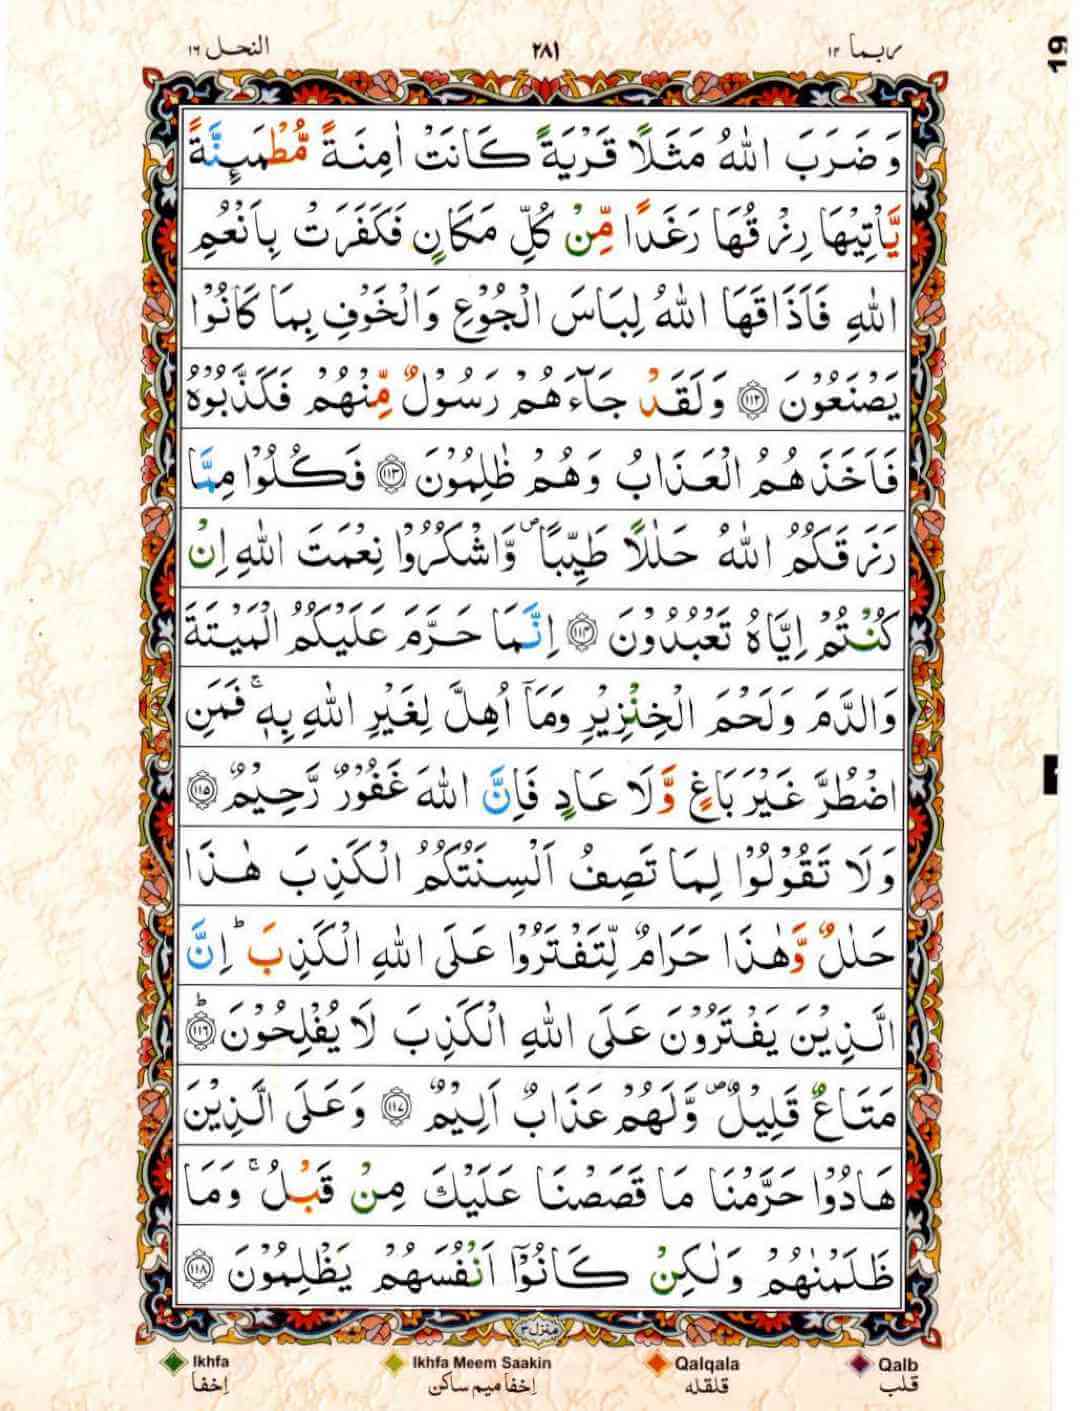 ربما ١٤ ٢٨١ النحل ١٦
19
وَضَرَبَ اللّٰهُ مَثَلًا قَرْيَةً كَانَتْ اٰمِنَةً مُّطْمَئِنَّةً
يَّاْتِيْهَا رِزْقُهَا رَغَدًا مِّنْ كُلِّ مَكَانٍ فَكَفَرَتْ بِاَنْعُمِ
اللّٰهِ فَاَذَاقَهَا اللّٰهُ لِبَاسَ الْجُوْعِ وَالْخَوْفِ بِمَا كَانُوْا
يَصْنَعُوْنَ ﴿١١٢﴾ وَلَقَدْ جَآءَهُمْ رَسُوْلٌ مِّنْهُمْ فَكَذَّبُوْهُ
فَاَخَذَهُمُ الْعَذَابُ وَهُمْ ظٰلِمُوْنَ ﴿١١٣﴾ فَكُلُوْا مِمَّا
رَزَقَكُمُ اللّٰهُ حَلٰلًا طَيِّبًا ۖ وَّاشْكُرُوْا نِعْمَتَ اللّٰهِ اِنْ
كُنْتُمْ اِيَّاهُ تَعْبُدُوْنَ ﴿١١٤﴾ اِنَّمَا حَرَّمَ عَلَيْكُمُ الْمَيْتَةَ
وَالدَّمَ وَلَحْمَ الْخِنْزِيْرِ وَمَآ اُهِلَّ لِغَيْرِ اللّٰهِ بِهٖ ۚ فَمَنِ
اضْطُرَّ غَيْرَ بَاغٍ وَّلَا عَادٍ فَاِنَّ اللّٰهَ غَفُوْرٌ رَّحِيْمٌ ﴿١١٥﴾
وَلَا تَقُوْلُوْا لِمَا تَصِفُ اَلْسِنَتُكُمُ الْكَذِبَ هٰذَا
حَلٰلٌ وَّهٰذَا حَرَامٌ لِّتَفْتَرُوْا عَلَى اللّٰهِ الْكَذِبَ ؕ اِنَّ
الَّذِيْنَ يَفْتَرُوْنَ عَلَى اللّٰهِ الْكَذِبَ لَا يُفْلِحُوْنَ ؕ ﴿١١٦﴾
مَتَاعٌ قَلِيْلٌ ۖ وَّلَهُمْ عَذَابٌ اَلِيْمٌ ﴿١١٧﴾ وَعَلَى الَّذِيْنَ
هَادُوْا حَرَّمْنَا مَا قَصَصْنَا عَلَيْكَ مِنْ قَبْلُ ۚ وَمَا
ظَلَمْنٰهُمْ وَلٰكِنْ كَانُوْٓا اَنْفُسَهُمْ يَظْلِمُوْنَ ﴿١١٨﴾
منزل ٣
Ikhfa Ikhfa Meem Saakin Qalqala Qalb
اِخفا اِخفا میم ساکن قلقله قلب